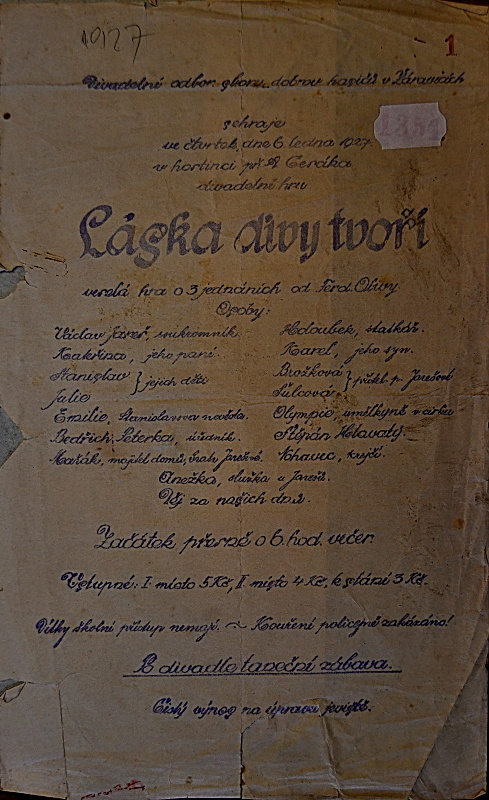 1927
1
Divadelní odbor sboru dobrov. hasičů v Žáravicích
135
sehraje
ve čtvrtek, dne 6. ledna 1927
v hostinci př. A. Geráka
divadelní hru
Láska divy tvoří
veselá hra o 3 jednáních od Ferd. Olivy
Osoby:
Václav Jareš, soukromník. Hloubek, statkář.
Kateřina, jeho paní. Karel, jeho syn.
Stanislav } jejich děti Brožková } přítel. p. Jarešové
Julie Šulcová
Emilie, Stanislavova nevěsta. Olympie, umělkyně v cirku
Bedřich Peterka, úředník. Štěpán Hlavatý.
Mařák, majitel domů, bratr Jarešové. Nohavec, krejčí.
Anežka, služka u Jarešů.
Děj za našich dnů.
Začátek přesně o 6. hod. večer.
Vstupné: I. místo 5 Kč, II. místo 4 Kč, k stání 3 Kč.
Dítky školní přístup nemají. ~ Kouření policejně zakázáno!
Po divadle taneční zábava.
Čistý výnos na úpravu jeviště.